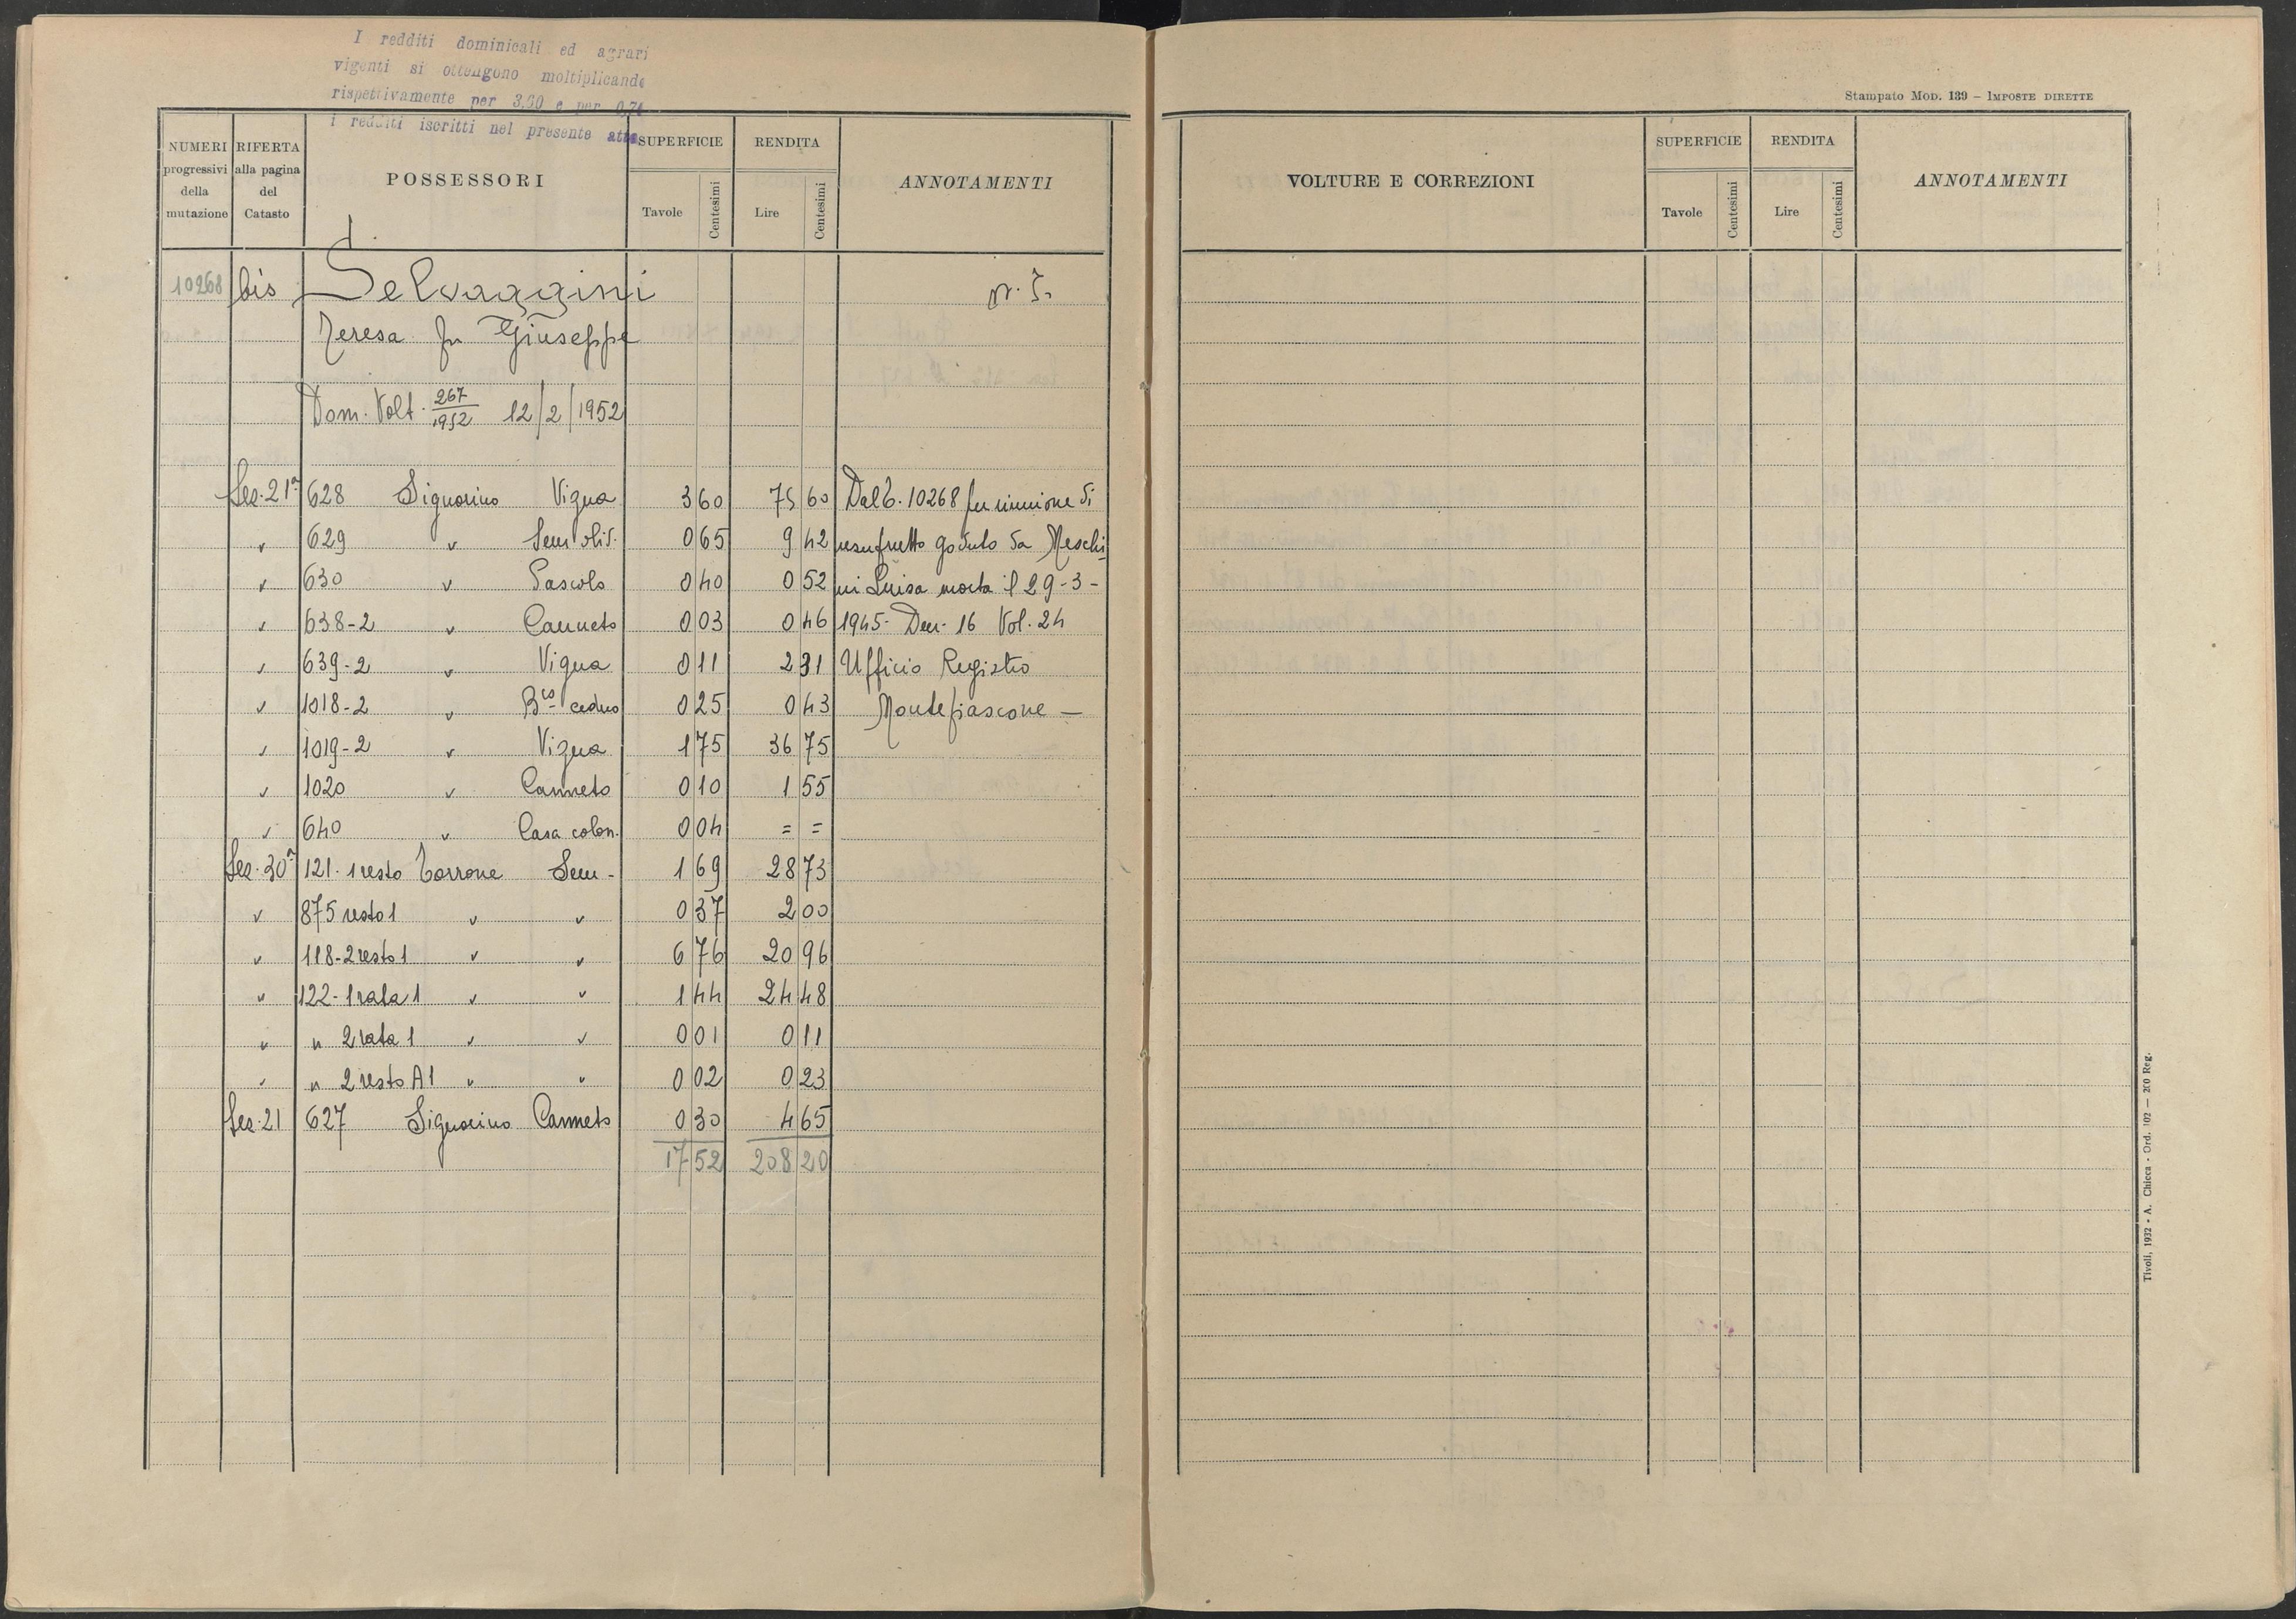 I redditi dominicali ed agrari
vigenti si ottengono moltiplicando
rispettivamente per 3,60 e per
i redditi iscritti nel presente atto
NUMERI progressivi della mutazione
RIFERTA alla pagina del Catasto
POSSESSORI
SUPERFICIE
Tavole Centesimi
RENDITA
Lire Centesimi
ANNOTAMENTI
10268 bis Selvaggini
Teresa fu Giuseppe
Dom. Volt. 267/1952 12/2/1952
Sez. 21ª 628 Signorino Vigna 3 60 75 60 Dal C. 10268 per riunione di
" 629 " Sem. oliv. 0 65 9 42 usufrutto goduto da Meschi
" 630 " Pascolo 0 40 0 52 ni Luisa morta il 29-3-
" 638-2 " Canneto 0 03 0 46 1945- Den. 16 Vol. 24
" 639-2 " Vigna 0 11 2 31 Ufficio Registro
" 1018-2 " B.co ceduo 0 25 0 43 Montefiascone -
" 1019-2 " Vigna 1 75 36 75
" 1020 " Canneto 0 10 1 55
" 640 " Casa colon. 0 04 = =
Sez. 30ª 121. 1 resto Torrone Sem. 1 69 28 73
" 875 resto 1 " " 0 37 2 00
" 118-2 resto 1 " " 6 76 20 96
" 122-1 rata 1 " " 1 44 24 48
" " 2 rata 1 " " 0 01 0 11
" " 2 resto A1 " " 0 02 0 23
Sez. 21 627 Signorino Canneto 0 30 4 65
17 52 208 20
Stampato Mod. 139 – Imposte dirette
VOLTURE E CORREZIONI
SUPERFICIE
Tavole Centesimi
RENDITA
Lire Centesimi
ANNOTAMENTI
Tivoli, 1932 - A. Chicca - Ord. 102 — 200 Reg.